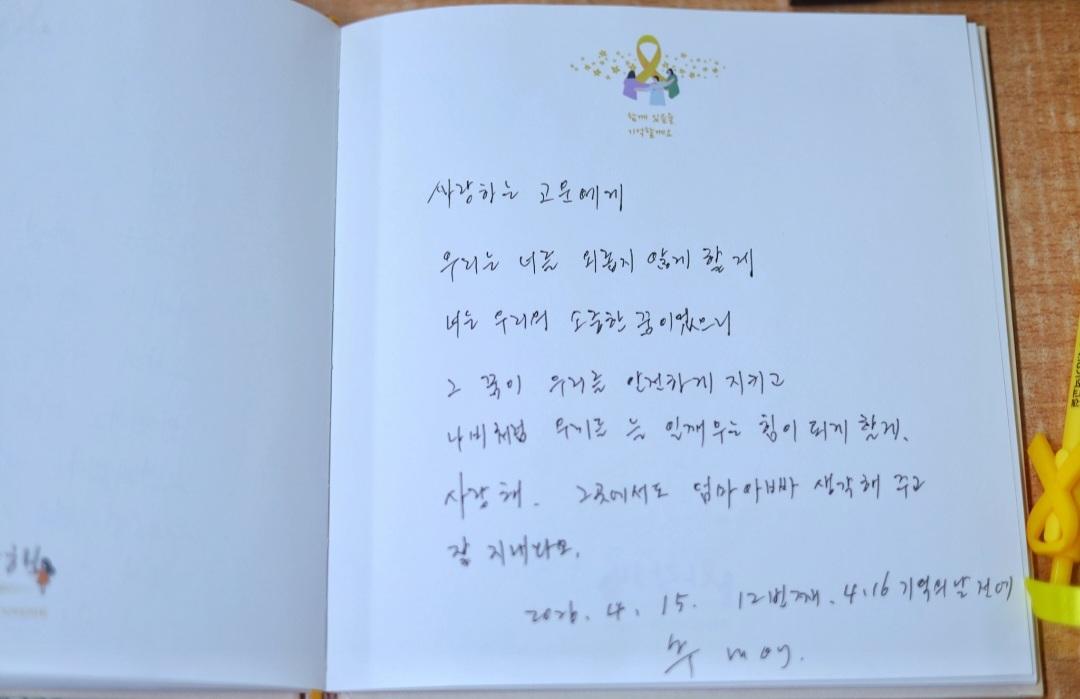 함께 있음을
기억할게요
사랑하는 고운에게
우리는 너를 외롭지 않게 할게
너는 우리의 소중한 꿈이었으니
그 꿈이 우리를 안전하게 지키고
나비처럼 우리를 늘 일깨우는 힘이 되게 할게.
사랑해. 그곳에서도 엄마아빠 생각해 주고
잘 지내라요.
2026. 4. 15. 12번째. 4.16 기억의 날 전에